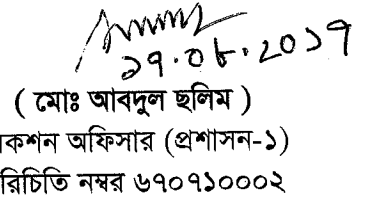 ১৭.০৮.২০১৭
( মোঃ আবদুল ছলিম )
কশন অফিসার (প্রশাসন-১)
রিচিতি নম্বর ৬৭০৭১০০০২